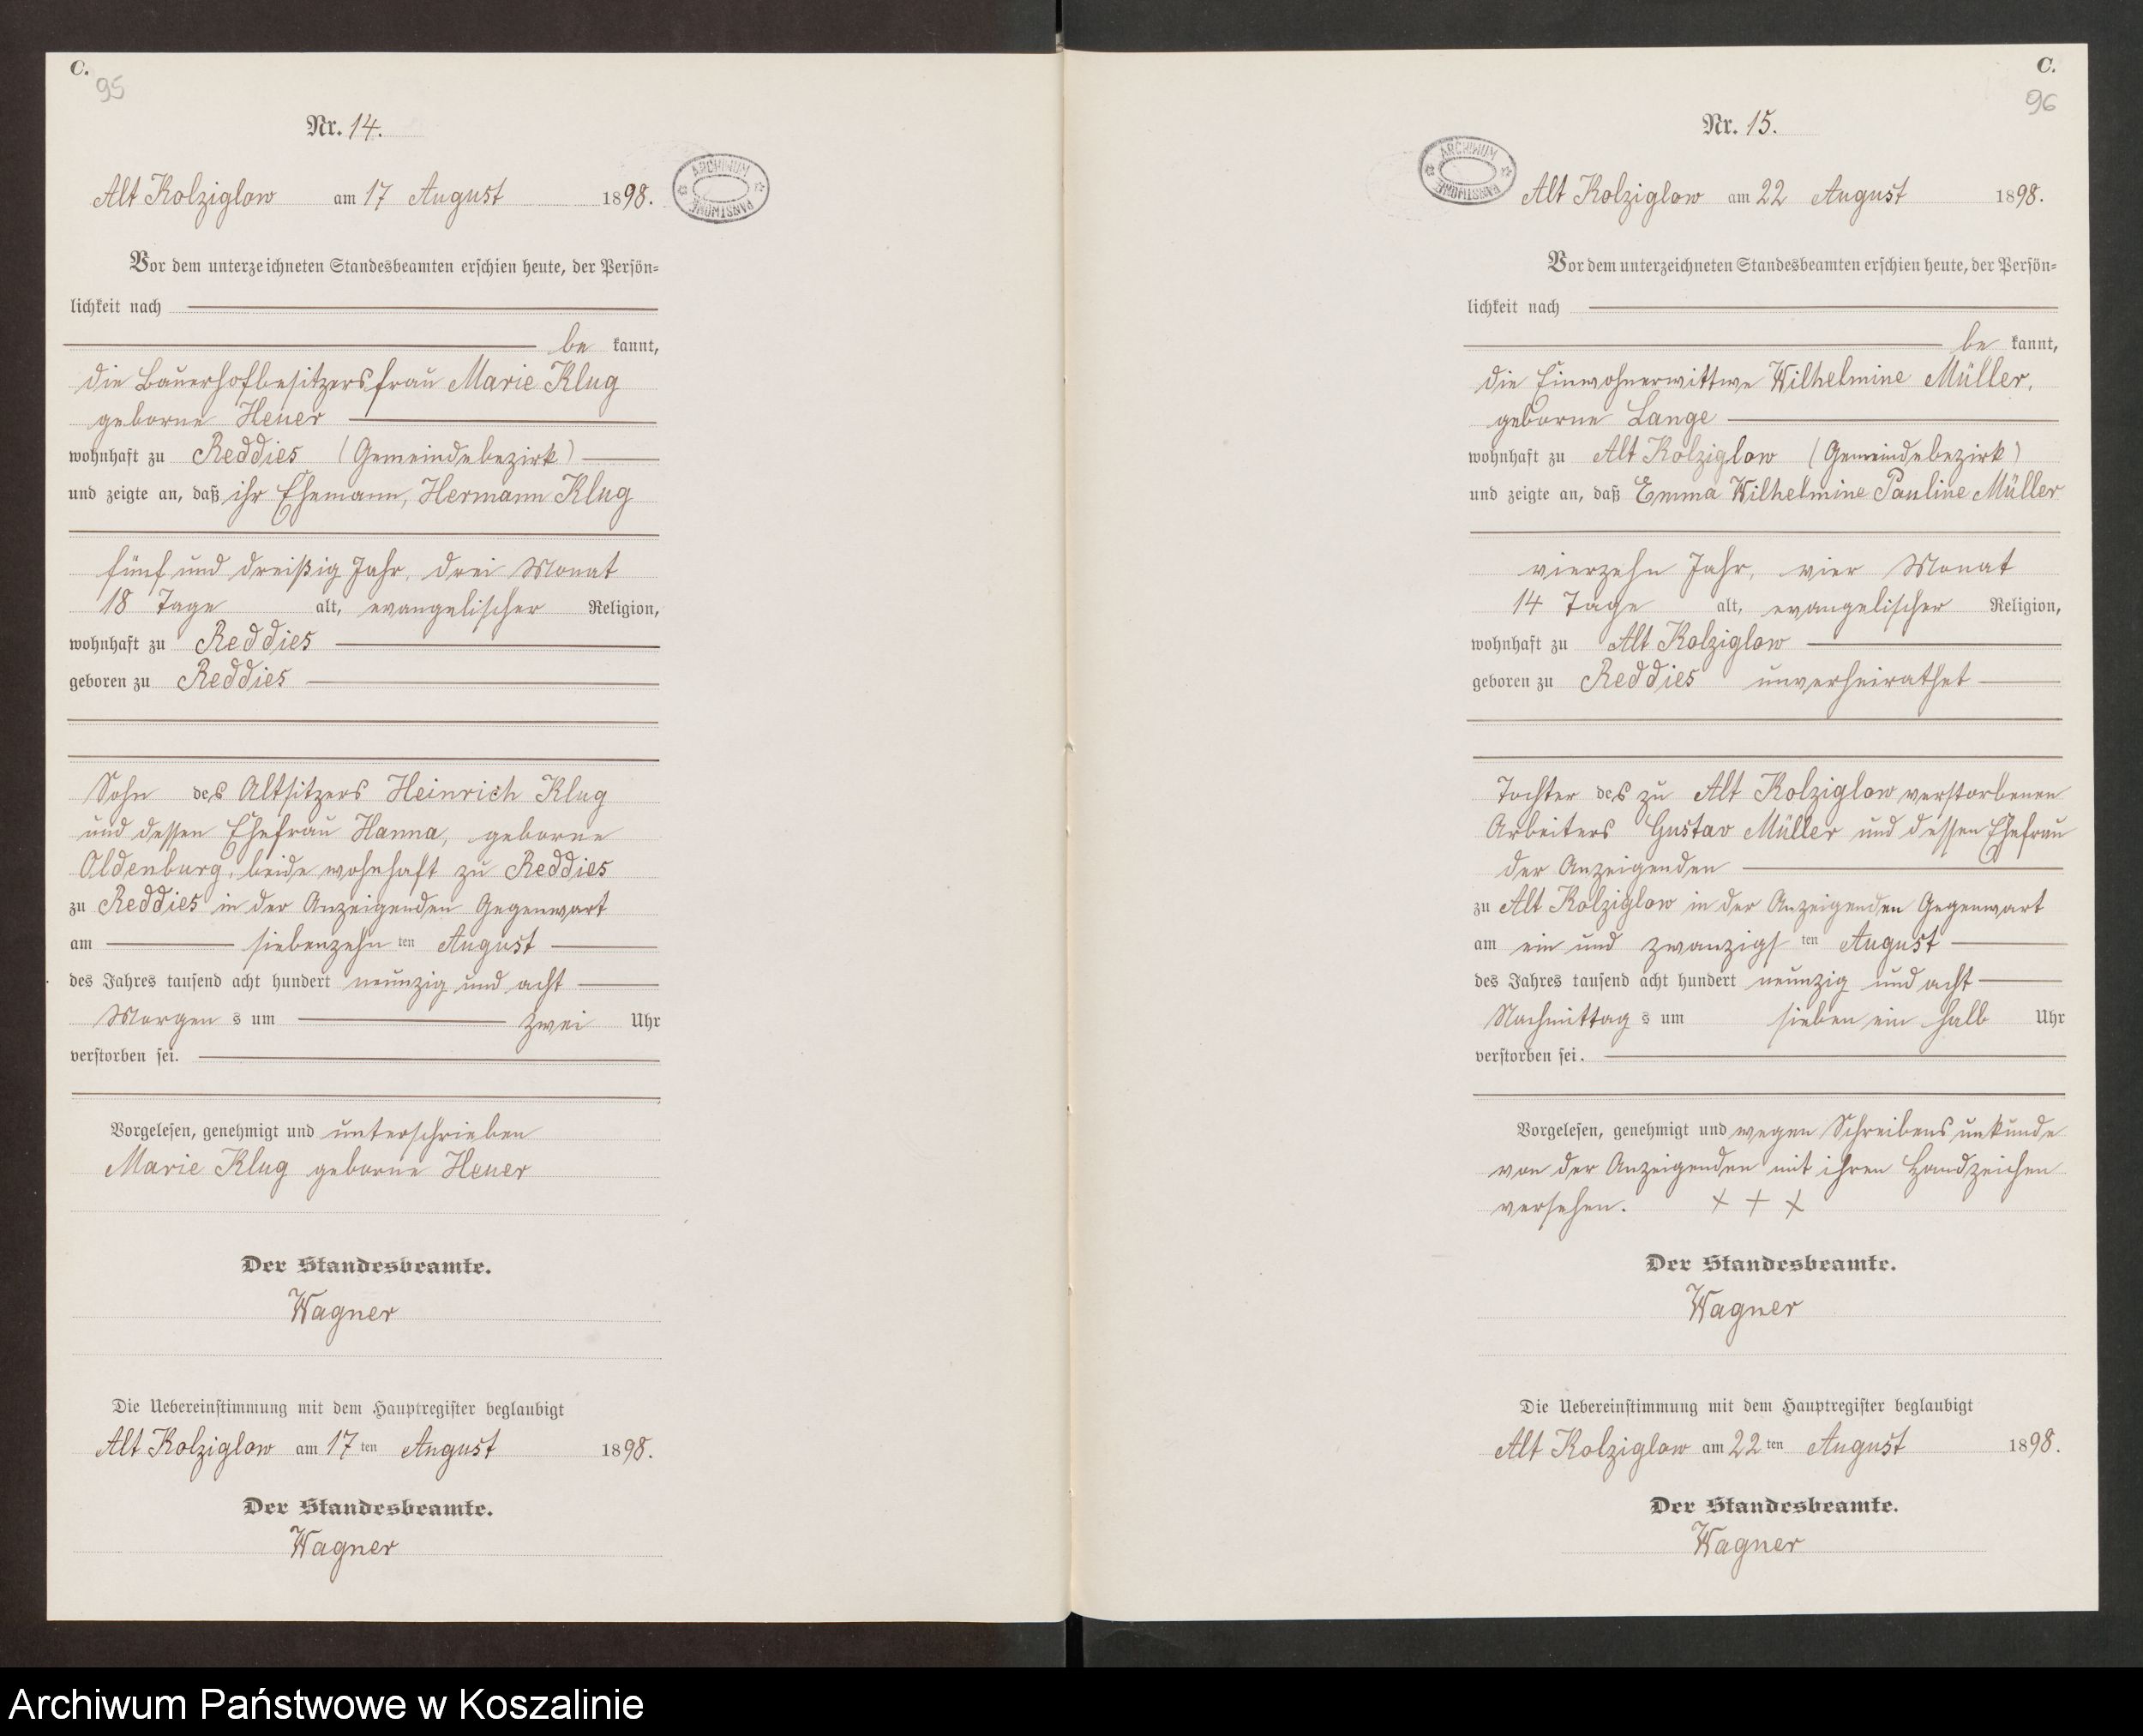 C.
95
Nr. 14.
Alt Kolziglow am 17 August 1898.
ARCHIWUM PAŃSTWOWE
Vor dem unterzeichneten Standesbeamten erschien heute, der Persön-
lichkeit nach
be kannt,
die Bauerhofbesitzersfrau Marie Klug
geborne Heuer
wohnhaft zu Reddies (Gemeindebezirk)
und zeigte an, daß ihr Ehemann, Hermann Klug
fünf und dreißig Jahr, drei Monat
18 Tage alt, evangelischer Religion,
wohnhaft zu Reddies
geboren zu Reddies
Sohn des Altsitzers Heinrich Klug
und dessen Ehefrau Hanna, geborne
Oldenburg, beide wohnhaft zu Reddies
zu Reddies in der Anzeigenden Gegenwart
am siebenzehn ten August
des Jahres tausend acht hundert neunzig und acht
Morgen s um zwei Uhr
verstorben sei.
Vorgelesen, genehmigt und unterschrieben
Marie Klug geborne Heuer
Der Standesbeamte.
Wagner
Die Uebereinstimmung mit dem Hauptregister beglaubigt
Alt Kolziglow am 17 ten August 1898.
Der Standesbeamte.
Wagner
C.
96
Nr. 15.
ARCHIWUM PAŃSTWOWE
Alt Kolziglow am 22 August 1898.
Vor dem unterzeichneten Standesbeamten erschien heute, der Persön-
lichkeit nach
be kannt,
die Einwohnerwittwe Wilhelmine Müller,
geborne Lange
wohnhaft zu Alt Kolziglow (Gemeindebezirk)
und zeigte an, daß Emma Wilhelmine Pauline Müller
vierzehn Jahr, vier Monat
14 Tage alt, evangelischer Religion,
wohnhaft zu Alt Kolziglow
geboren zu Reddies unverheirathet
Tochter des zu Alt Kolziglow verstorbenen
Arbeiters Gustav Müller und dessen Ehefrau
der Anzeigenden
zu Alt Kolziglow in der Anzeigenden Gegenwart
am ein und zwanzigs ten August
des Jahres tausend acht hundert neunzig und acht
Nachmittag s um sieben ein halb Uhr
verstorben sei.
Vorgelesen, genehmigt und wegen Schreibensunkunde
von der Anzeigenden mit ihren Handzeichen
versehen. + + +
Der Standesbeamte.
Wagner
Die Uebereinstimmung mit dem Hauptregister beglaubigt
Alt Kolziglow am 22 ten August 1898.
Der Standesbeamte.
Wagner
Archiwum Państwowe w Koszalinie